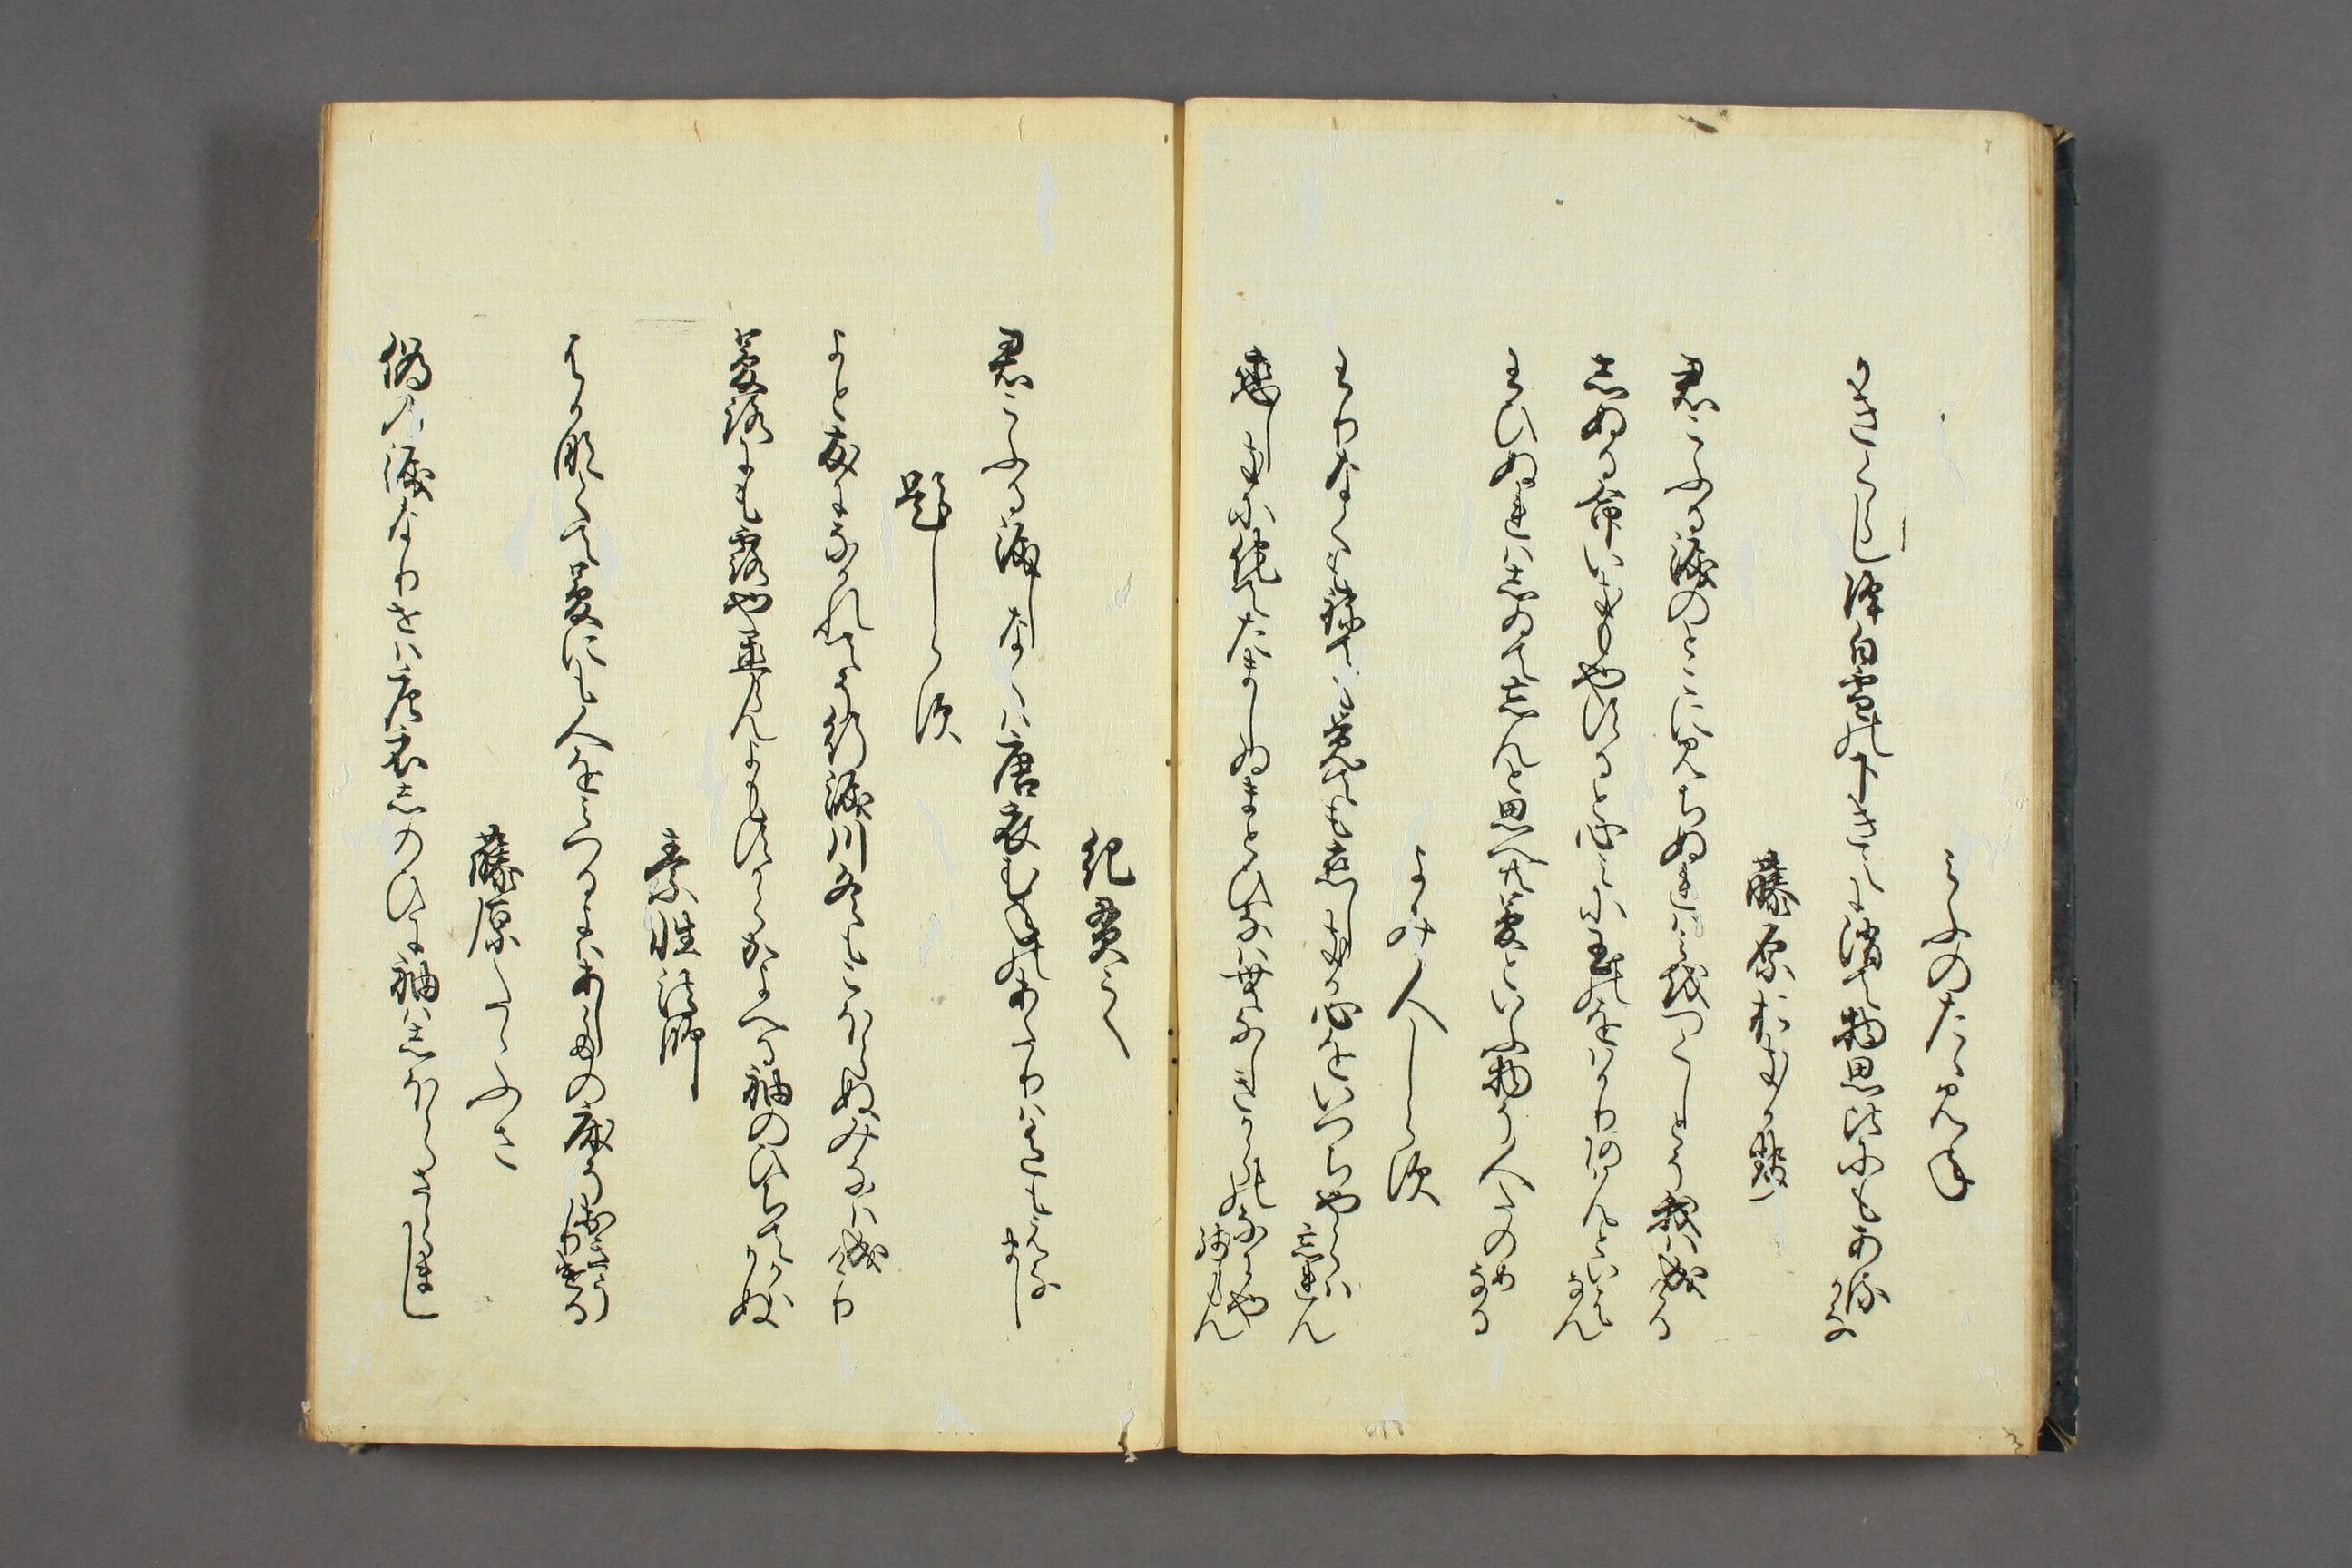 みふのたゝみね
かきくらし降白雪の下きえに消て物思ころにもあるかな
藤原おきかせ
君こふる涙のとこにみちぬれはみをつくしとそ我は成ける
しぬる命いきもやするとこゝろみに玉のをはかりあはんといはなん
わひぬれはしゐてわすれんと思へとも夢といふ物そ人たのめなる
よみ人しらす
わりなくも寝てもさめても恋しきか心をいつちやらはわすれん
恋しきに侘てたましゐまとひなはむなしきからの名にや残らん
紀貫之
君こふる涙しなくは唐衣むねのあたりは色もえなまし
題しらす
よとともになかれてそ行涙川冬もこほらぬみなわ成けり
夢路にも露や置らんよもすからかよへる袖のひちてかはかぬ
素性法師
はかなくて夢にも人をみつる夜はあしたの床そおきうかりける
藤原たゝふさ
偽の涙なりせは唐衣しのひに袖はしほらさらまし